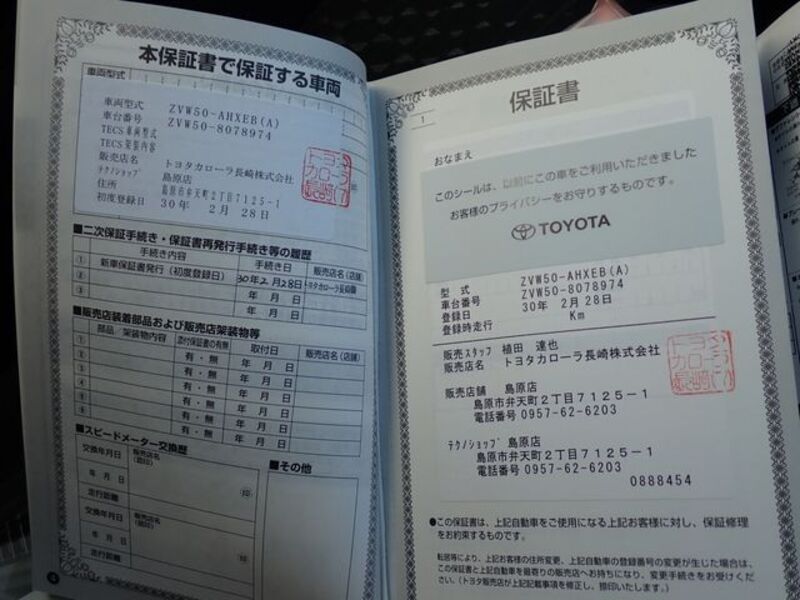 本保証書で保証する車両
車両型式
車両型式 ZVW50-AHXEB(A)
車台番号 ZVW50-8078974
TECS車両型式
TECS架装内容
販売店名 トヨタカローラ長崎株式会社
テクノショップ 島原店
住所 島原市弁天町2丁目7125-1
初度登録日 30年 2月 28日
■二次保証手続き・保証書再発行手続き等の履歴
手続き内容 手続き日 販売店名(店舗)
① 新車保証書発行(初度登録日) 30年2月28日 トヨタカローラ長崎㈱
② 年 月 日
③ 年 月 日
■販売店装着部品および販売店架装物等
部品/架装物内容 添付保証書の有無 取付日 販売店名(店舗)
① 有・無 年 月 日
② 有・無 年 月 日
③ 有・無 年 月 日
④ 有・無 年 月 日
⑤ 有・無 年 月 日
■スピードメーター交換歴
交換年月日 販売店名(店印)
年 月 日 ㊞
走行距離
交換年月日 販売店名(店印)
年 月 日 ㊞
走行距離
■その他
4
1
保証書
おなまえ
このシールは、以前にこの車をご利用いただきました
お客様のプライバシーをお守りするものです。
TOYOTA
型式 ZVW50-AHXEB(A)
車台番号 ZVW50-8078974
登録日 30年 2月 28日
登録時走行 Km
販売スタッフ 植田 達也
販売店名 トヨタカローラ長崎株式会社
販売店舗 島原店
島原市弁天町2丁目7125-1
電話番号 0957-62-6203
テクノショップ 島原店
島原市弁天町2丁目7125-1
電話番号 0957-62-6203
0888454
●この保証書は、上記自動車をご使用になる上記お客様に対し、保証修理
をお約束するものです。
転居等により、上記お客様の住所変更、上記自動車の登録番号の変更が生じた場合は、
この保証書と上記自動車を最寄りの販売店へお持ちになり、変更手続きをお受けくだ
さい。(トヨタ販売店が上記記載事項を修正し、捺印いたします。)